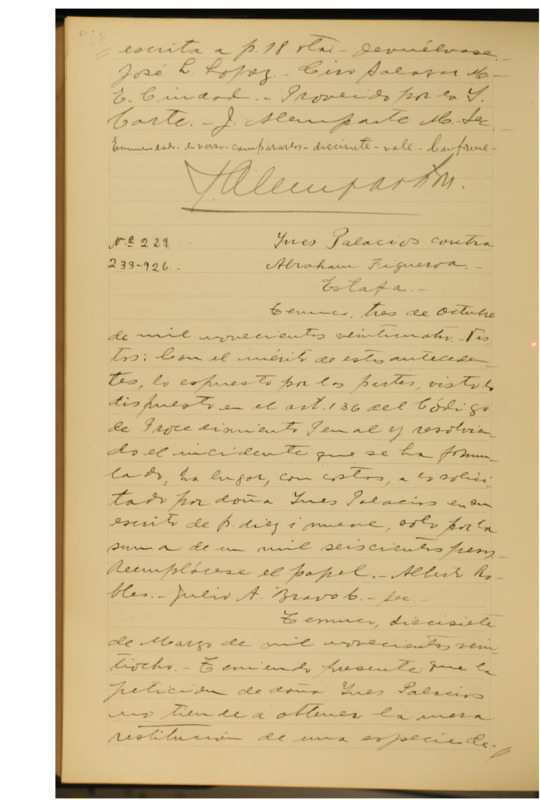 escrita a p. 18 vta - devuélvase.
José L. López. Ciro Salazar M.-
E. Ciudad. - Proveído por la I.
Corte. - J. Alemparte M. Sec.
Enmendado - diverso - comparados - diecisiete - vale. Conforme -
J. Alemparte M.
Nº 229
233-926.
Ynes Palacios contra
Abraham Figueroa.-
Estafa.-
Temuco, tres de Octubre
de mil novecientos veinticuatro. Vis
tos: Con el mérito de estos anteceden-
tes, lo espuesto por las partes, visto lo
dispuesto en el art. 136 del Código
de Procedimiento Penal y resolvien-
do el incidente que se ha formu-
lado, ha lugar, con costas, a lo solici
tado por doña Ynes Palacios en su
escrito de p. diez i nueve, solo por la
suma de un mil seiscientos pesos.
Reemplácese el papel. - Alberto Ro-
bles. - Julio A. Bravo C. - sec.
Temuco, diecisiete
de Marzo de mil novecientos vein-
tiocho. - Teniendo presente que la
petición de doña Ynes Palacios
no tiende a obtener la mera
restitución de una especie de-